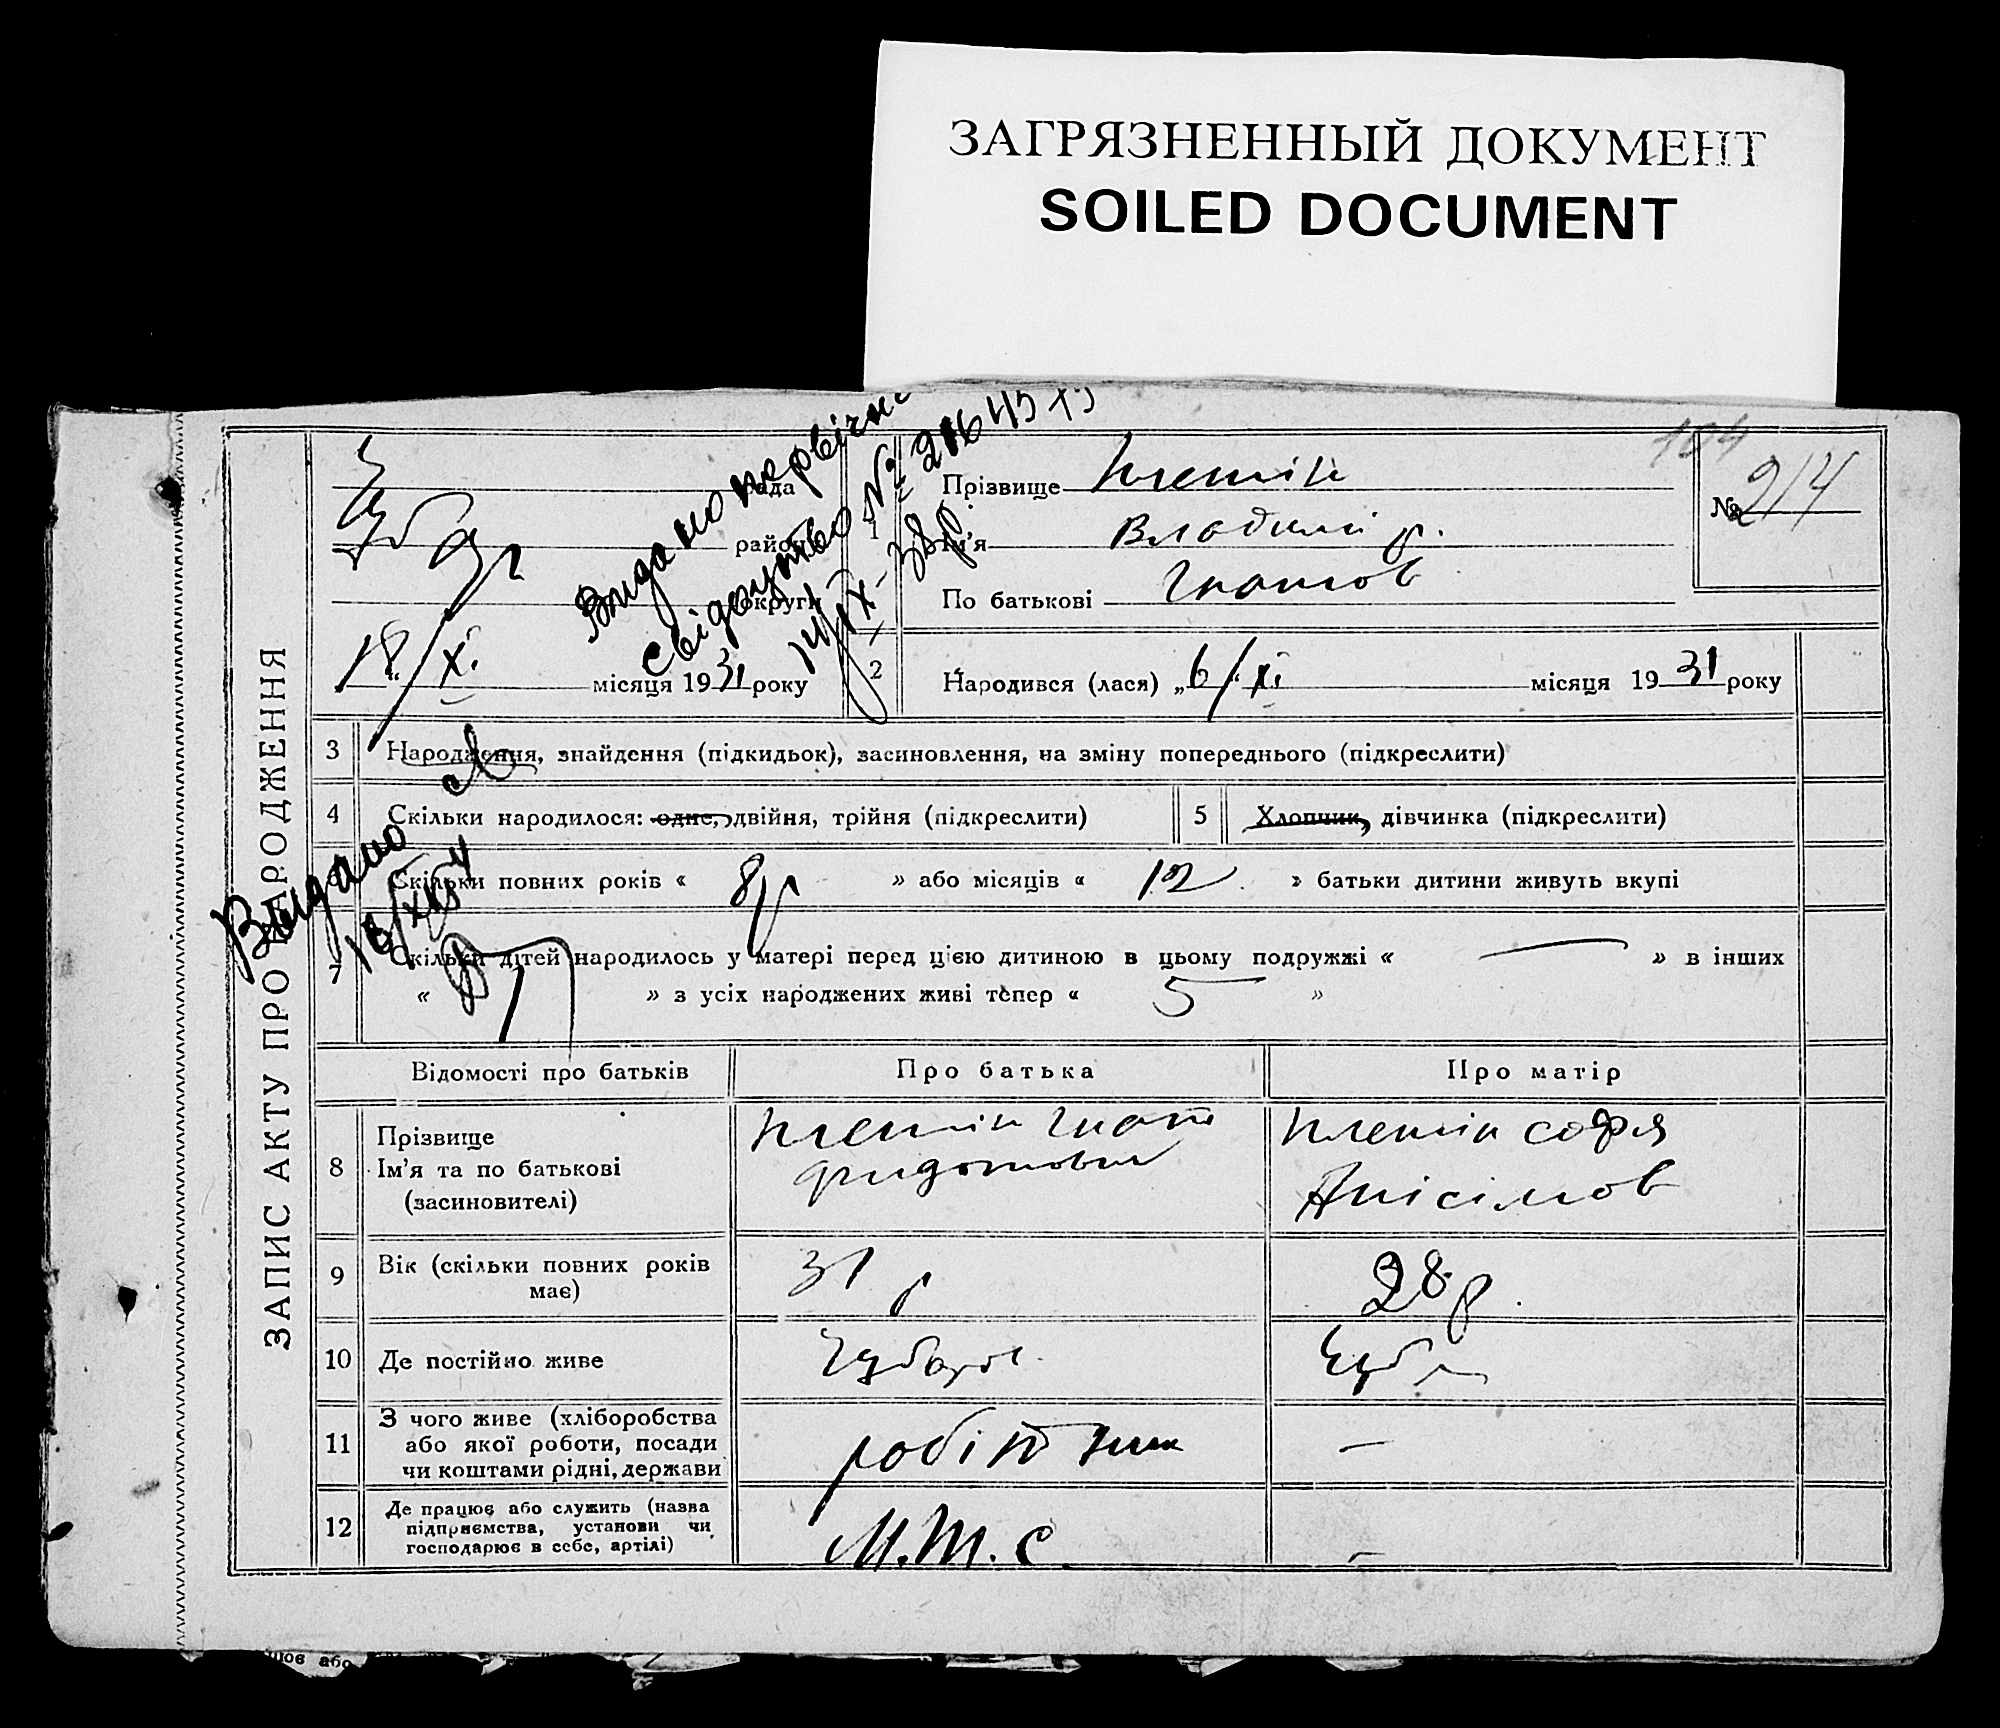 ЗАГРЯЗНЕННЫЙ ДОКУМЕНТ
SOILED DOCUMENT
ЗАПИС АКТУ ПРО НАРОДЖЕННЯ
рада
району
округи
18/XI місяця 1931 року
Видано
свідоцтво №
1
Прізвище
Ім'я Владимір.
По батькові Гнатов
№ 214
104
2
Народився (лася) „6/XI місяця 1931 року
3 Народження, знайдення (підкидьок), засиновлення, на зміну попереднього (підкреслити)
4 Скільки народилося: одне, двійня, трійня (підкреслити)
5 Хлопчик, дівчинка (підкреслити)
Видано
6 Скільки повних років « 8 » або місяців « 12 » батьки дитини живуть вкупі
7 Скільки дітей народилось у матері перед цією дитиною в цьому подружжі « — » в інших
« » з усіх народжених живі тепер « 5 »
Відомості про батьків
Про батька
Про матір
8 Прізвище
Ім'я та по батькові
(засиновителі)
Гнат
софія
Анісімов
9 Вік (скільки повних років
має)
31 р
28 р.
10 Де постійно живе
11 З чого живе (хліборобства
або якої роботи, посади
чи коштами рідні, держави
робітник
—
12 Де працює або служить (назва
підприємства, установи чи
господарює в себе, артілі)
М.Т.С
—